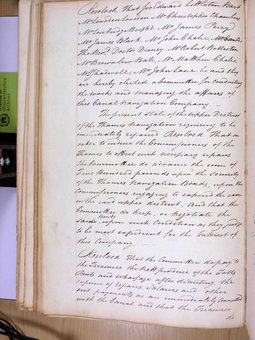 Resolved, That Sir Edward Littleton Baro
Mr Christopher Chambers
Mr James Perry
Mr James Black, Mr John Chalie,
The Revd Doctor Disney, Mr Robert
Mr Matthew Chalie
Mr John Lane be and they
are hereby elected a Committee for conducting
the works and managing the affairs of
this Canal Navigation Company
The present state of the upper District
of the Thames Navigation requiring to be
immediately repaired Resolved That in
order to induce the Commissioners of the
Thames to effect such necessary repairs
the Committee do advance the sum of
Five thousand pounds upon the security
of the Thames Navigation Bonds, upon the
Commissioners engaging to expend the same
in the said upper district. And that the
Committee do keep or negotiate the
Bonds upon such Condition as they judge
to be most expedient for the Interest of
this Company
Resolved That the Committee do pay to
the Treasurer the produce of the Tolls
Rents and wharfage after deducting the
expence of repairs, Salaries and other
payments as are immediately connected
with the Canal and that the Treasurer
do